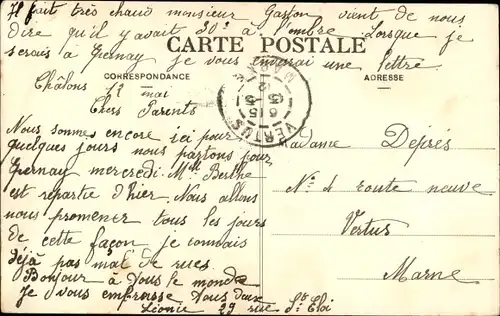 Il fait très chaud monsieur Gaston vient de nous
dire qu'il y avait 30° à l'ombre. Lorsque je
serais à Epernay je vous enverai une lettre
CARTE POSTALE
CORRESPONDANCE
ADRESSE
Châlons 12 mai
Chers Parents
Nous sommes encore ici pour
quelques jours nous partons pour
Epernay mercredi. Mlle Berthe
est repartie d'hier. Nous allons
nous promener tous les jours
de cette façon je connais
déjà pas mal de rues.
Bonjour à Tous le monde
Je vous embrasse Tous deux
Léonie 29 rue St Eloi
VERTUS
6 15
Madame Deprés
No 4 route neuve
Vertus
Marne